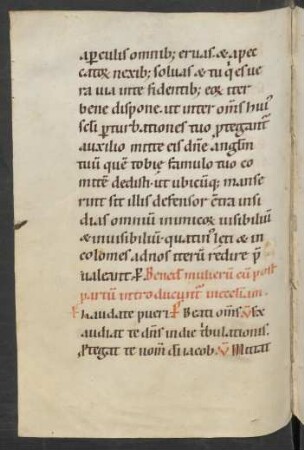 a periculis omnib; eruas & a pec
catoꝝ nexib; soluas & tu q̇ es ue
ra uia in te fidentib; eoꝝ iter
bene dispone. ut inter om̄s hui᷒
scl̄i perturbationes tuo ꝓtegant᷑
auxilio mitte eis dn̄e angl̄m
tuū quē tobie famulo tuo co
mitē dedisti. ut ubicūq; manse
rint sit illis defensor cōtra insi
dias omniū inimicoꝝ uisibiliū
& inuisibiliū. quatin᷒ l̨eti & in
colomes ad nos iterū redire p̄
ualeant. ꝑ. Bened̄ mulierū cū post
partū introducunt᷑ in eccl̄iam.
Laudate pueri. Beati om̄s. Ex
audiat te dn̄s in die tribulationis.
Ptegat te nom̄ dī iacob. Mittat